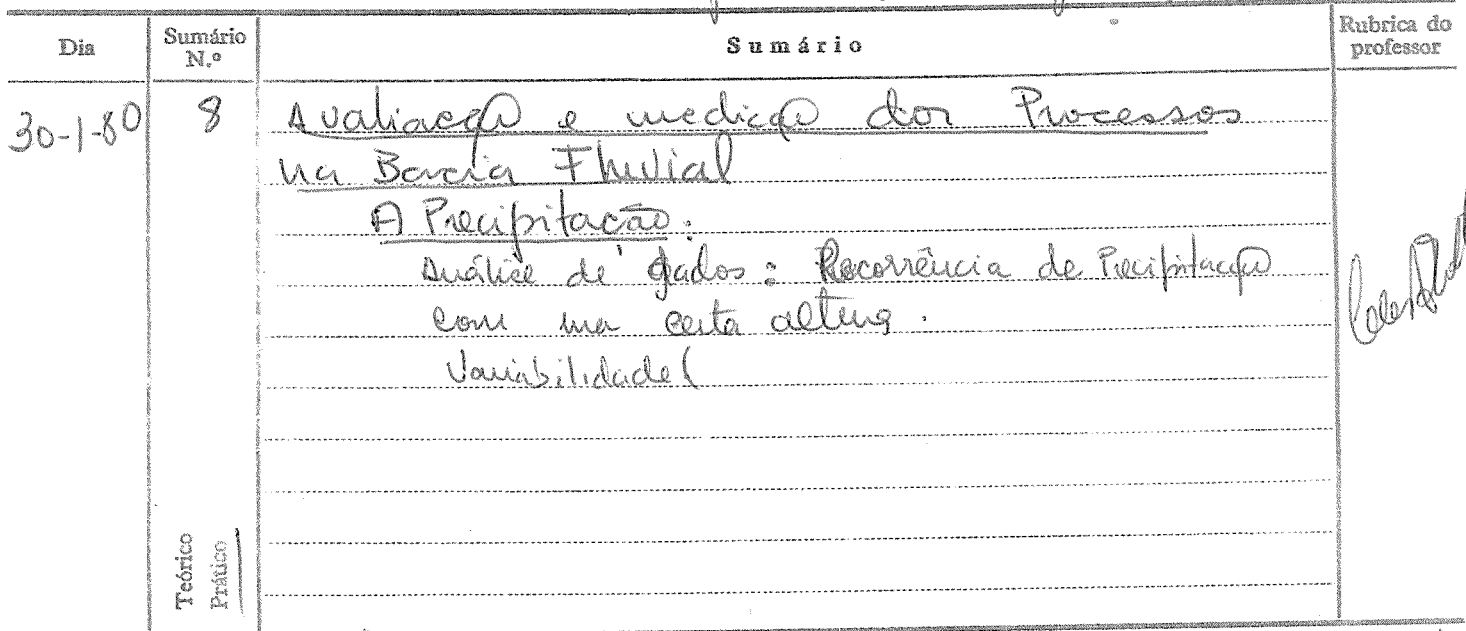 Dia
Sumário N.º
Sumário
Rubrica do professor
30-1-80
8
Avaliação e medição dos Processos
na Bacia Fluvial
A Precipitação:
Análise de dados: Recorrência de Precipitação
com uma certa altura.
Variabilidade (
Teórico
Prático